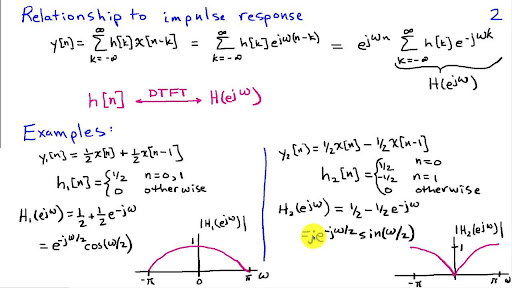 Relationship to impulse response 2
y[n] = ∞ Σ k=-∞ h[k]x[n-k] = ∞ Σ k=-∞ h[k]e^jω(n-k) = e^jωn ∞ Σ k=-∞ h[k]e^-jωk
H(e^jω)
h[n] ←DTFT→ H(e^jω)
Examples:
y₁[n] = 1/2 x[n] + 1/2 x[n-1]
h₁[n] = { 1/2 n=0,1
0 otherwise
H₁(e^jω) = 1/2 + 1/2 e^-jω
= e^-jω/2 cos(ω/2)
|H₁(e^jω)|
1
-π 0 π ω
y₂[n] = 1/2 x[n] - 1/2 x[n-1]
h₂[n] = { 1/2 n=0
-1/2 n=1
0 otherwise
H₂(e^jω) = 1/2 - 1/2 e^-jω
= je^-jω/2 sin(ω/2)
|H₂(e^jω)|
1
-π π ω